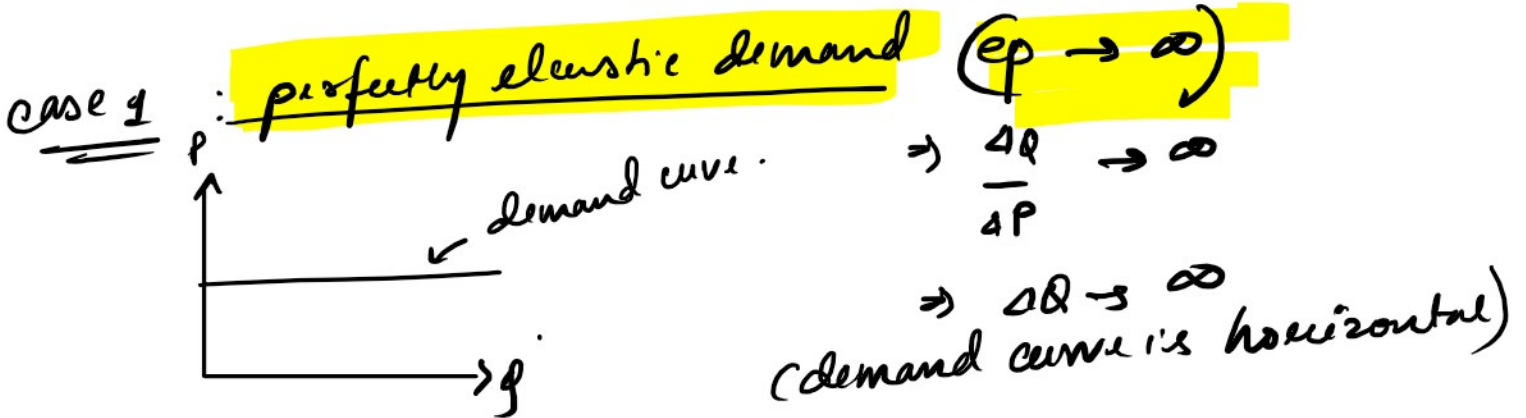 case 1 : perfectly elastic demand (ep → ∞)
P
demand cuve.
⇒ ΔQ/ΔP → ∞
⇒ ΔQ → ∞
(demand curve is horizontal)
Q